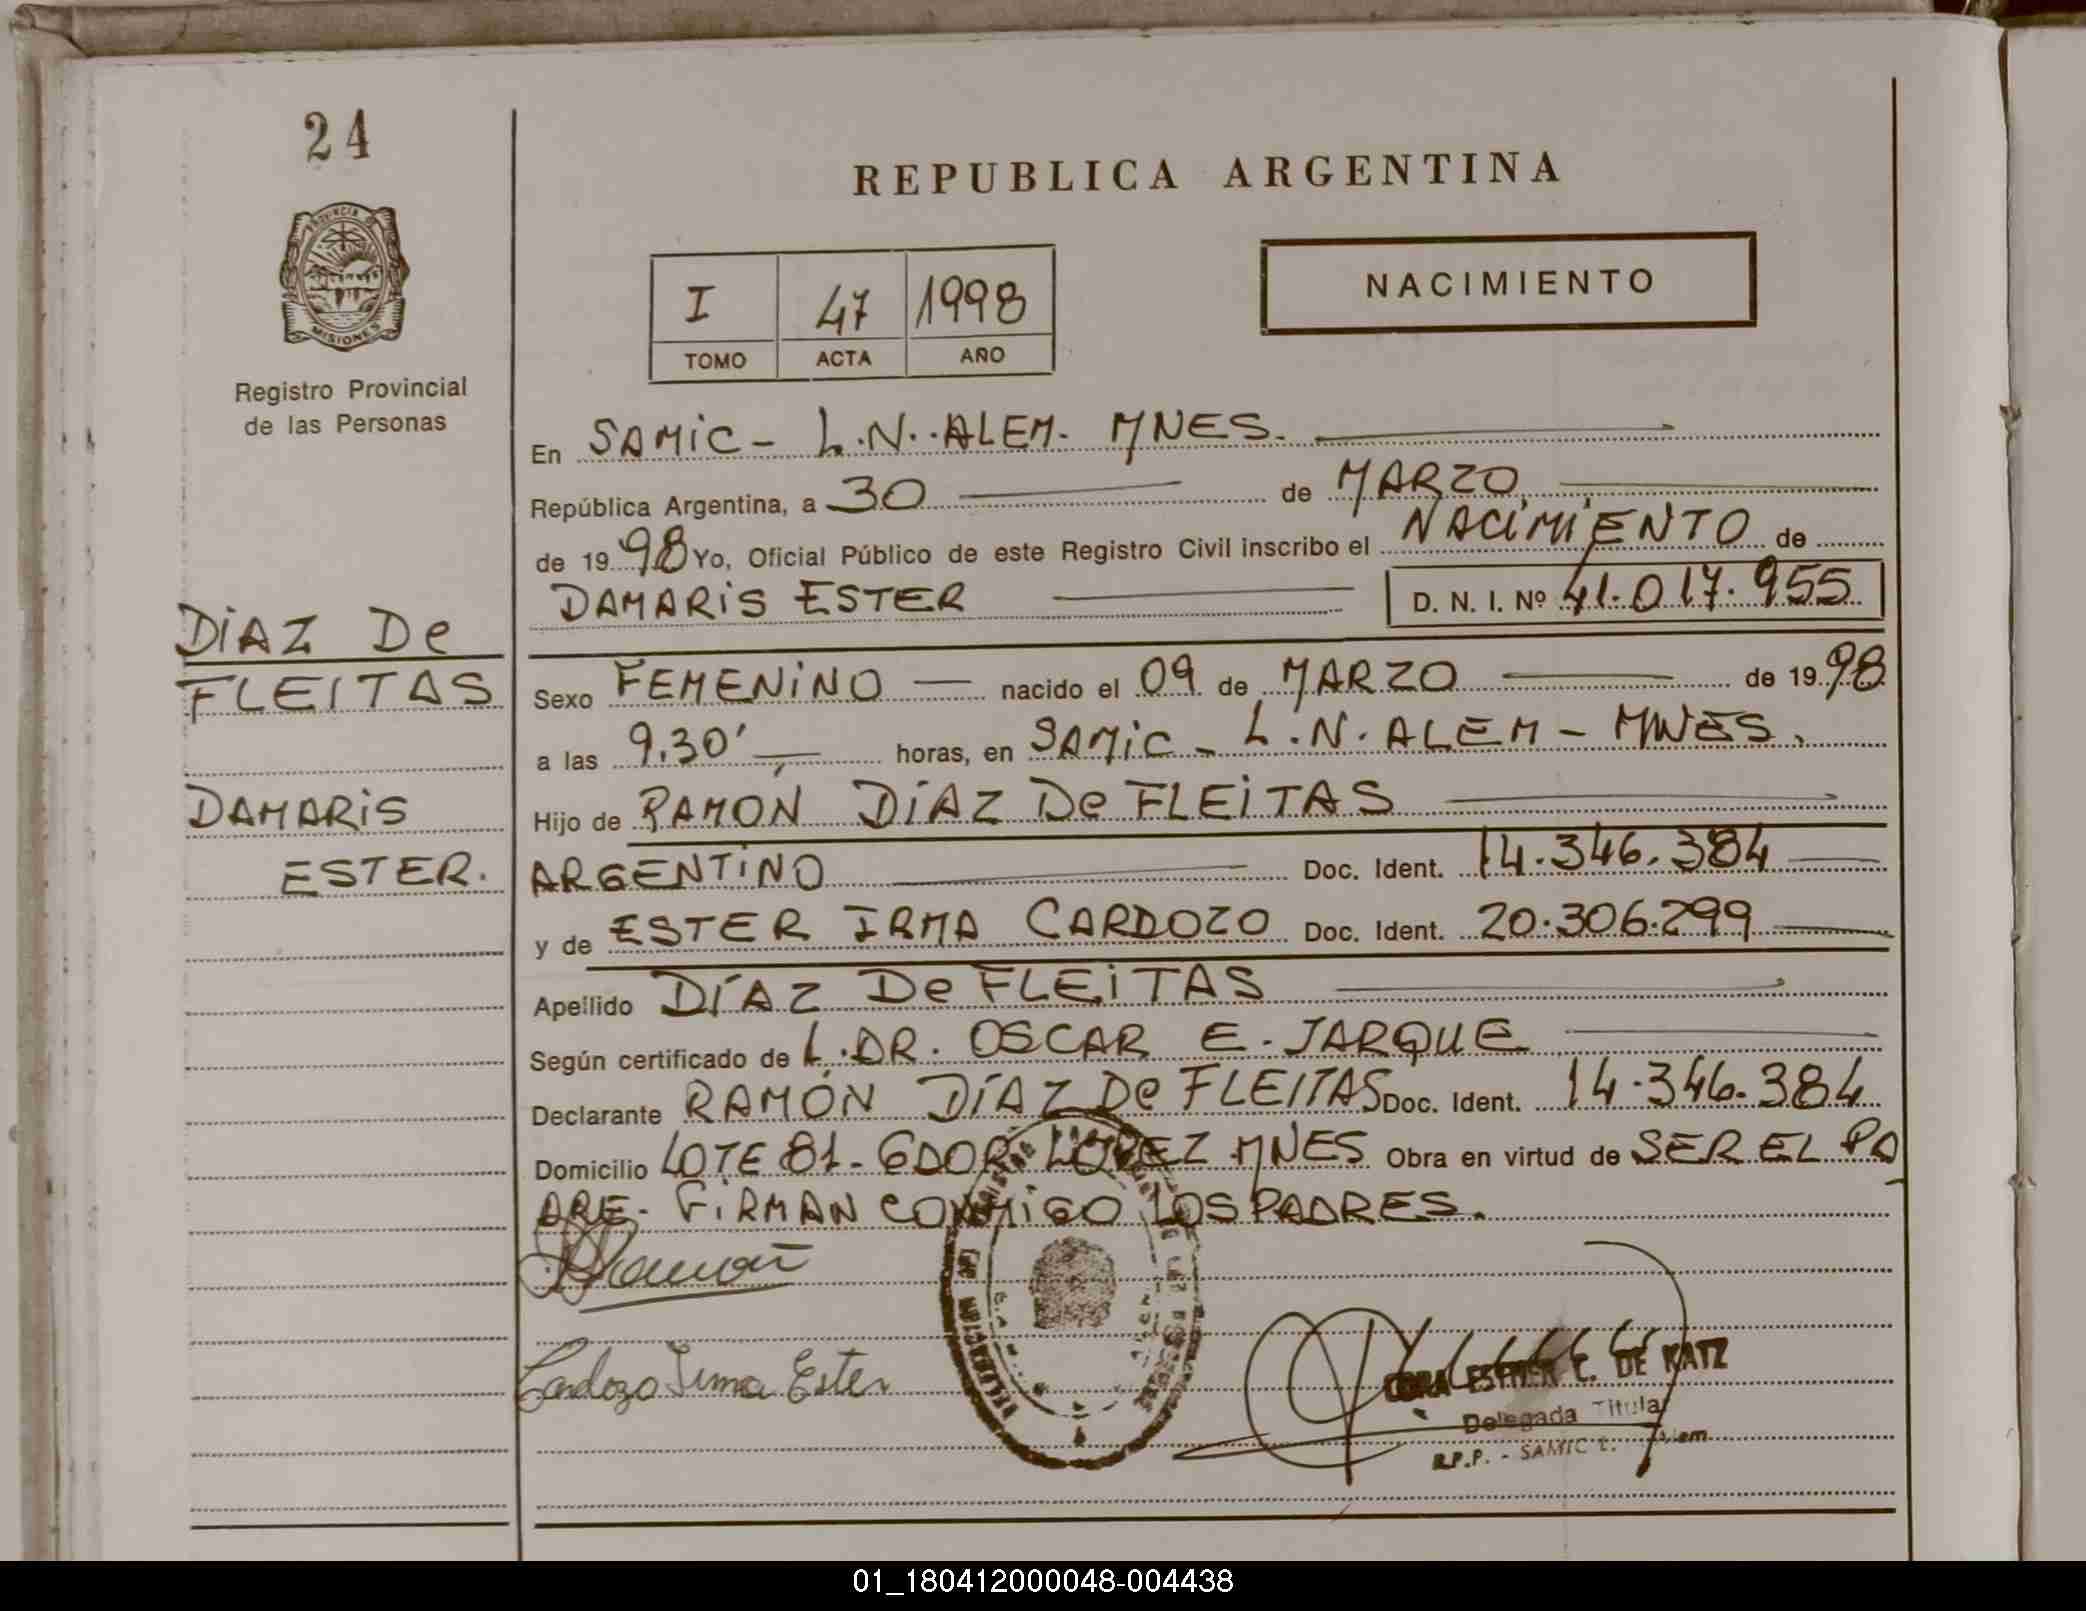 24
REPUBLICA ARGENTINA
PROVINCIA DE
MISIONES
Registro Provincial
de las Personas
I 47 1998
TOMO ACTA AÑO
NACIMIENTO
En SAMIC - L.N. ALEM. MNES.
República Argentina, a 30 de MARZO
de 1998 Yo, Oficial Público de este Registro Civil inscribo el NACIMIENTO de
DAMARIS ESTER D. N. I. Nº 41.017.955
DIAZ De
FLEITAS
DAMARIS
ESTER.
Sexo FEMENINO nacido el 09 de MARZO de 1998
a las 9.30' horas, en SAMIC - L.N. ALEM - MNES.
Hijo de RAMÓN DÍAZ De FLEITAS
ARGENTINO Doc. Ident. 14.346.384
y de ESTER IRMA CARDOZO Doc. Ident. 20.306.299
Apellido DÍAZ De FLEITAS
Según certificado de L. DR. OSCAR E. JARQUE
Declarante RAMÓN DÍAZ De FLEITAS Doc. Ident. 14.346.384
Domicilio LOTE 81 - GDOR. LOPEZ MNES Obra en virtud de SER EL PA
DRE - FIRMAN CONMIGO LOS PADRES.
Ramón
Cardozo Irma Ester
ESTHER C. DE KATZ
Delegada Titular
R.P.P. - SAMIC L. Alem
01_180412000048-004438